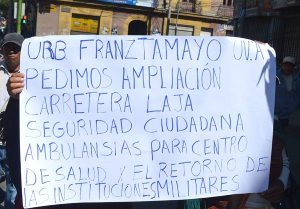 URB. FRANZTAMAYO UV.A
PEDIMOS AMPLIACIÓN
CARRETERA LAJA
SEGURIDAD CIUDADANA
AMBULANSIAS PARA CENTRO
DE SALUD Y EL RETORNO DE
LAS INSTITUCIONES MILITARES